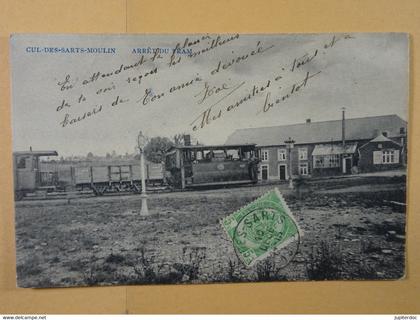 CUL-DES-SARTS-MOULIN ARRÊT DU TRAM
En attendant le plaisir
de te voir reçois les meilleurs
baisers de ton amie dévouée
Zoé
Mes amitiés à tous et à
bientôt
CUL-DES-SARTS
http://www.delcampe.net
jupiterfree